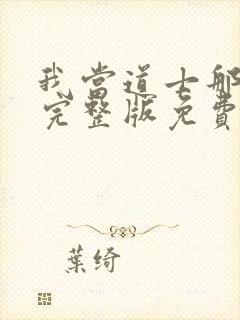 我当道士那
完整版免费
葉绮